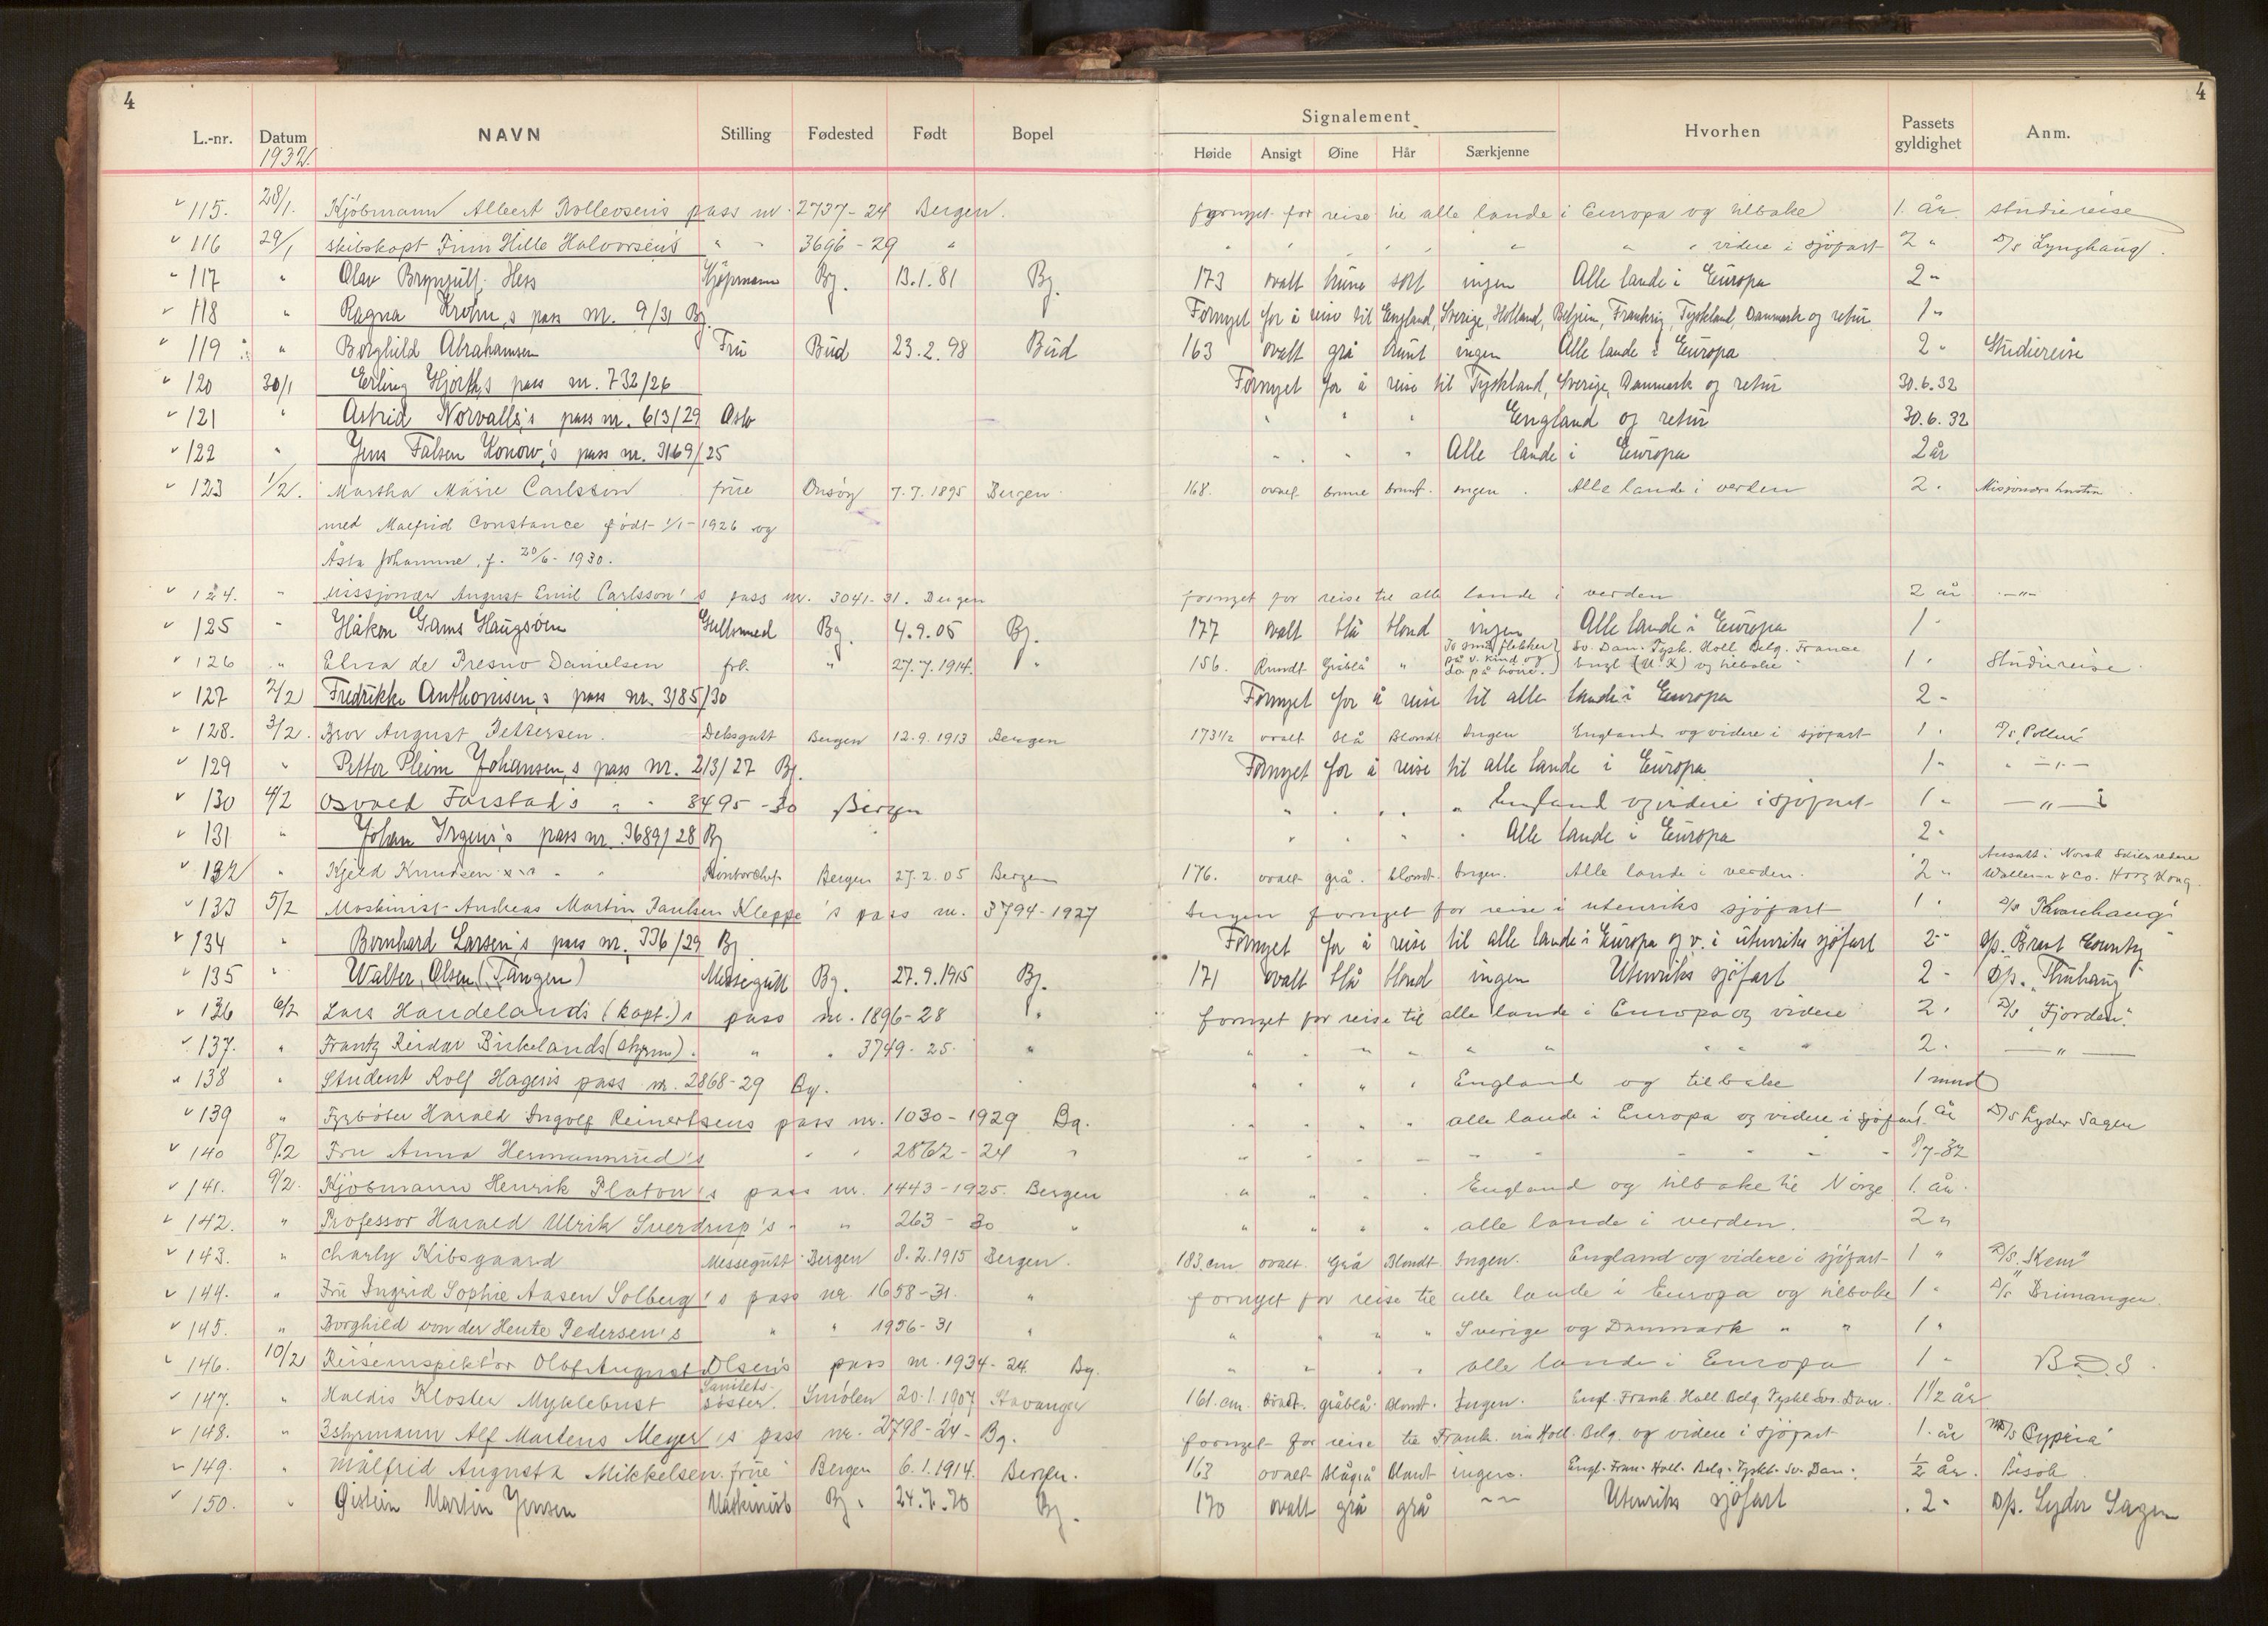 4 4
Signalement
L.-nr. Datum NAVN Stilling Fødested Født Bopel Høide Ansigt Øine Hår Særkjenne Hvorhen Passets gyldighet Anm.
1932.
115. 28/1. Kjøbmann Albert Rolleosens pass nr. 2737-24 Bergen. fornyet for reise til alle lande i Europa og tilbake 1. år. studiereise
116 29/1 skibskapt Finn Hille Halvorsen's " " 3696-29 " " " " " " " " videre i sjøfart 2 " D/s Lynghaug.
117 " Olav Brynjulf Hess Kjøpmann Bg. 13.1.81 Bg. 173 ovalt brune sort ingen Alle lande i Europa 2 "
118 " Ragna Krohn,s pass nr. 9/31 Bg. Fornyet for å reise til England, Sverige, Holland, Belgien, Frankrig, Tyskland, Danmark og retur 1 "
119 " Borghild Abrahamsen Fru Bud 23.2.98 Bud 163 ovalt grå brunt ingen Alle lande i Europa 2 " Studiereise
120 30/1 Erling Hjorth,s pass nr. 732/26 Fornyet for å reise til Tyskland, Sverige, Danmark og retur 30.6.32
121 " Astrid Norvalls,s pass nr. 613/29 Oslo " " " England og retur 30.6.32
122 " Jens Falsen Konow,s pass nr. 3169/25 " " " Alle lande i Europa 2 år
123 1/2. Martha Marie Carlsson frue Onsøy 7.7.1895 Bergen 168. ovalt brune brunt. ingen. Alle lande i verden 2 "
med Malfrid Constance født 1/1-1926 og
Åsta Johanne, f. 20/6-1930.
124. " Missjonær August Emil Carlsson's pass nr. 3041-31. Bergen fornyet for reise til alle lande i verden 2 år —"—
125 " Håkon Gams Haugsøen Gullsmed Bg. 4.9.05 Bg. 177 ovalt blå blond ingen Alle lande i Europa 1 "
126 " Elisa de Presno Danielsen frk. " 27.7.1914. " 156. Rundt Gråblå " To små flekker på v. kind og do på Sv. Dan. Tysk. Holl. Belg. France Engl. (U.K) og tilbake 1 " Studiereise.
127 2/2 Fredrikke Anthonisen,s pass nr. 3185/30 Fornyet for å reise til alle lande i Europa 2 "
128. 3/2. Bror August Pettersen. Dekksgutt Bergen 12.9.1913 Bergen 173 1/2 ovalt Blå Blondt Ingen England og videre i sjøfart 1 " D/s "Pollux"
129 " Petter Pleim Johansen,s pass nr. 213/27 Bg. Fornyet for å reise til alle lande i Europa 1 " " —"—
130 4/2 Osvald Farstad's " " 3495-30 Bergen " " " " " England og videre i sjøfart 1 " —"—
131 " Johan Irgens's pass nr. 3689/28 Bg " " " " Alle lande i Europa 2 "
132 " Kjeld Knudsen Kontorchef Bergen 27.2.05 Bergen 176. ovalt grå. blondt. Ingen. Alle lande i verden. 2 " Ansatt i Norsk Skibsrederi Wallem & Co. Hong Kong.
133 5/2 Maskinist Andreas Martin Paulsen Kleppe's pass nr. 3794-1927 Ingen fornyet for reise i utenriks sjøfart 1 " D/s "Kvarnhaug"
134 " Bernhard Larsen's pass nr. 336/29 Bg Fornyet for å reise til alle lande i Europa og v. i utenriks sjøfart 2 " D/s. "Brant County"
135 " Walter, Olsen (Tangen) Messegutt Bg. 27.9.1915 Bg. 171 ovalt blå blond ingen Utenriks sjøfart 2 "
136 6/2 Lars Handelands (kapt.) s pass nr. 1896-28 " fornyet for reise til alle lande i Europa og videre 2 " D/s "Fjorden".
137. " Frantz Reidar Birkelands (styrm). " " 3749-25. " " " " " " " " " " 2 " —"—
138 " Student Rolf Hagens pass nr. 2868-29 Bg. " " " " England og tilbake 1 mnd
139 " Fyrbøter Harald Ingolf Reinertsens pass nr. 1030-1929 Bg. " " " " alle lande i Europa og videre i sjøfart. 1 år D/s Lyder Sagen
140 8/2 Fru Anna Hermannrud's " " 2862-24 " " " " " " " " " " 8/7-32
141. 9/2. Kjøbmann Henrik Platon's pass nr. 1443-1925. Bergen " " " " England og tilbake til Norge 1. år.
142. " Professor Harald Ulrik Sverdrup's " " 263-30 " " " " " alle lande i verden. 2 "
143. " Charly Kibsgaard Messegutt Bergen 8.2.1915 Bergen. 183.cm ovalt. Grå Blondt Ingen. England og videre i sjøfart 1 " D/s. "Kem"
144. " Fru Ingrid Sophie Aasen Solberg's pass nr 1658-31. " fornyet for reise til alle lande i Europa og tilbake 1 " D/s Brimangen.
145. " Borghild von der Heute Pedersen's " " 1956-31 " " " " " Sverige og Danmark " " 1 "
146. 10/2 Reiseinspektør Olaf August Olsen's pass nr. 1934-24. Bg. " " " " alle lande i Europa 1 " B.D.S.
147. " Haldis Kloster Myklebust Sanitets søster. Smølen 20.1.1907 Stavanger 161.cm. ovalt. gråblå. Blondt. Ingen. Engl. Frank. Holl. Belg. Tyskl. Sv. Dan. 1 1/2 år
148. " 3styrmann Alf Martens Meyer's pass nr. 2798-24- Bg. fornyet for reise til Frank. via Holl. Belg. og videre i sjøfart 1. år M/s "Cypria"
149. " Målfrid Augusta Mikkelsen frue Bergen 6.1.1914. Bergen. 163 ovalt Blågrå Blont ingen. Engl. Fran. Holl. Belg. Tyskl. Sv. Dan. 1/2 år. Besøk
150. " Øistein Martin Jensen Maskinist Bg. 24.7.70 Bg. 170 ovalt grå grå "" Utenriks sjøfart 2 " D/s. Lyder Sagen